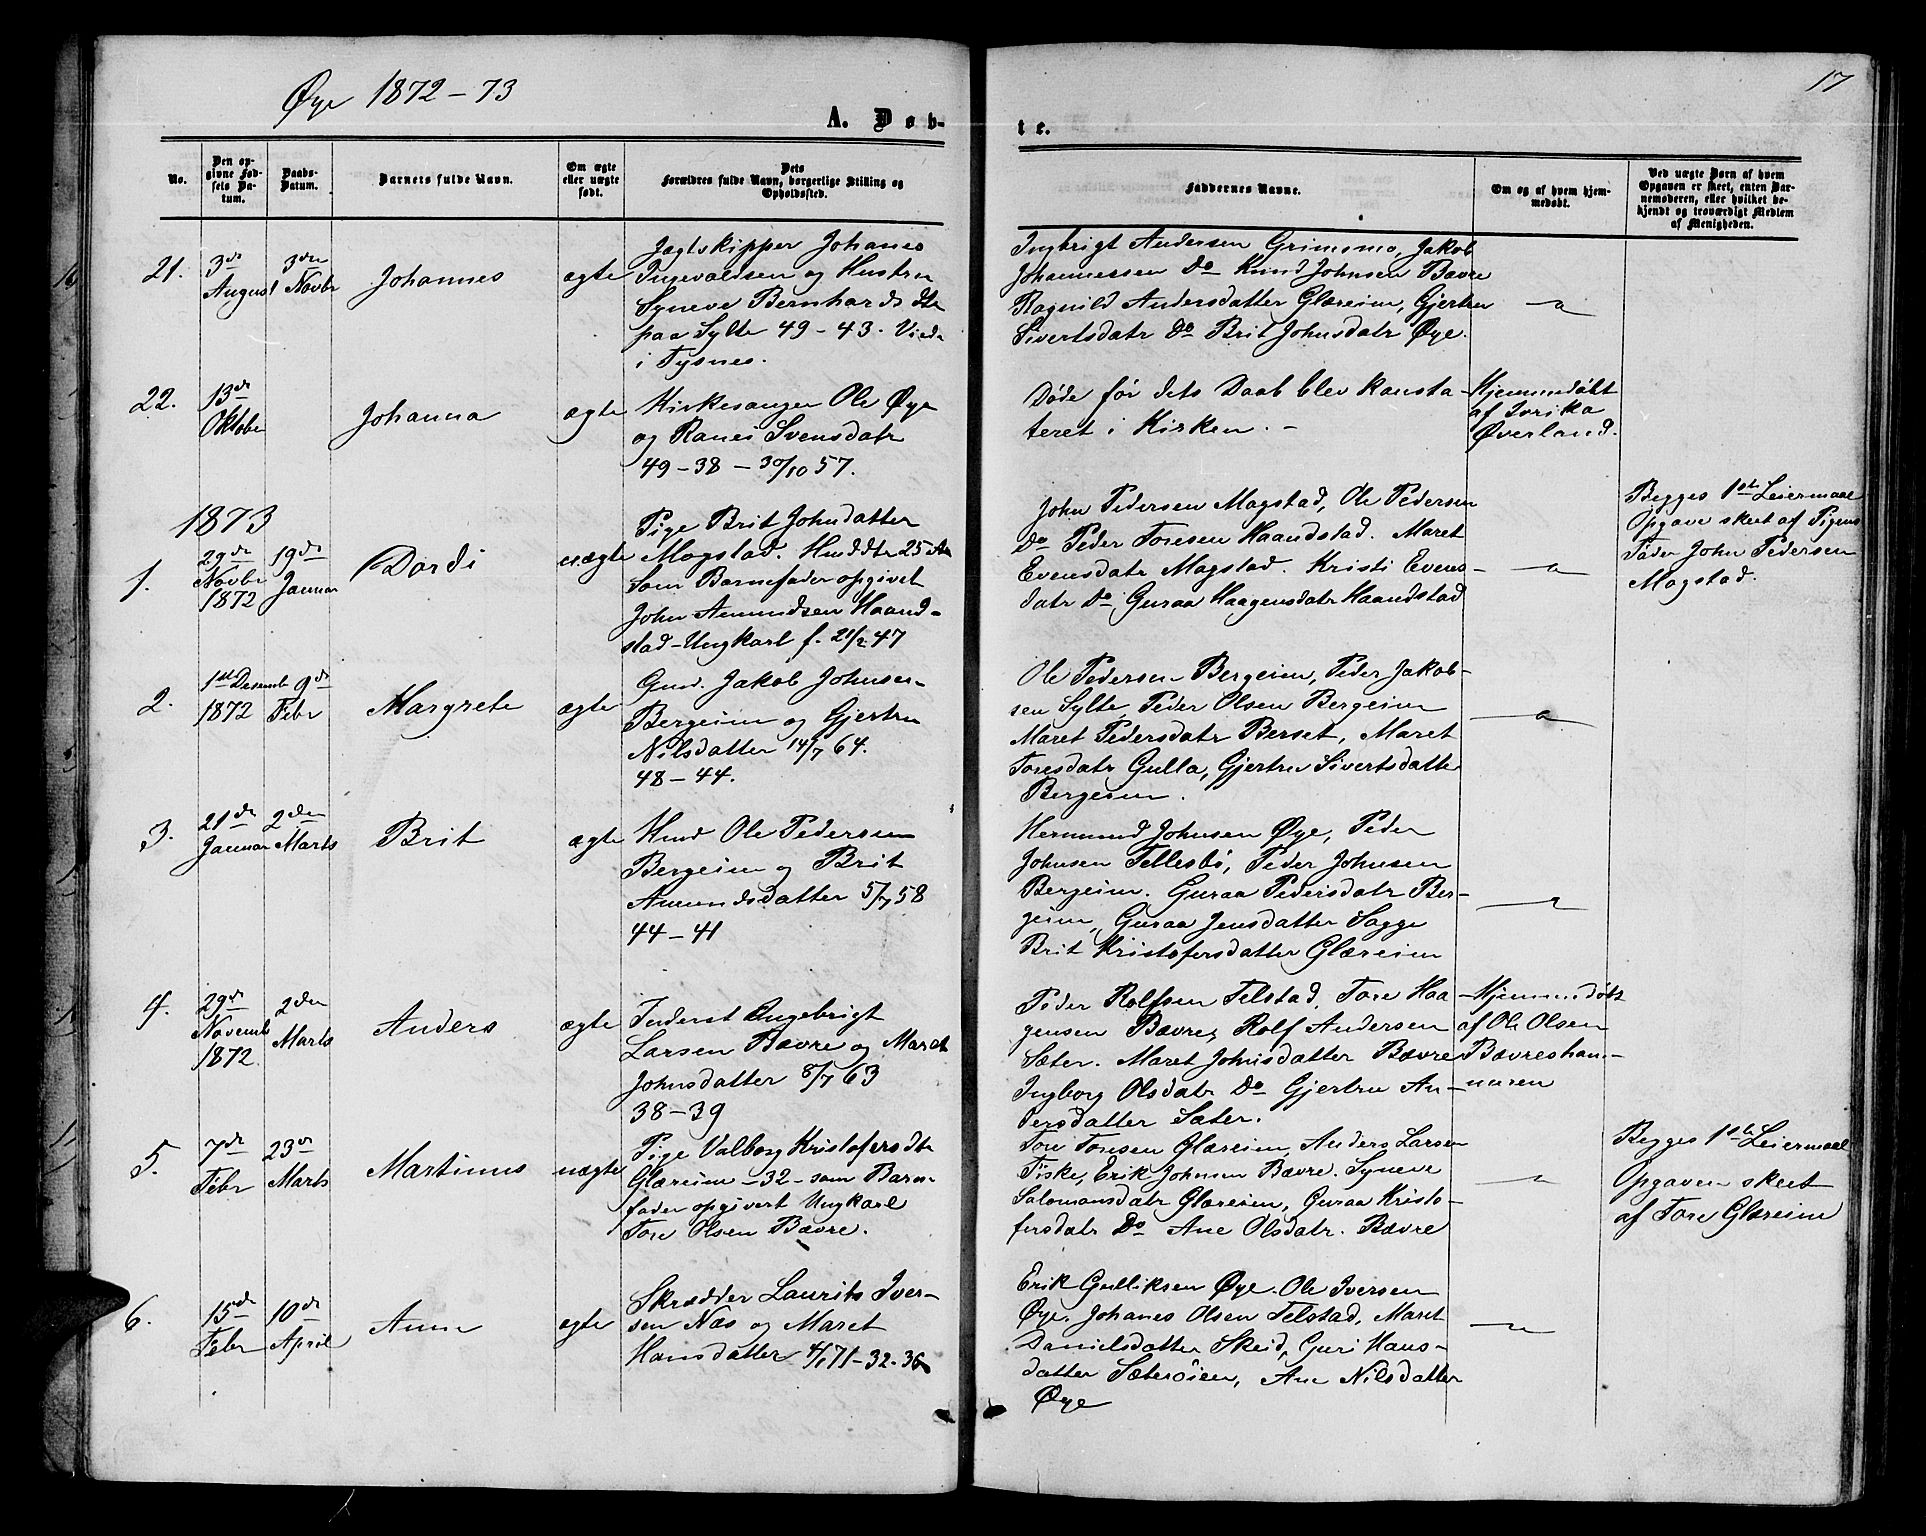 Øye 1872-73
17
A. Døb-
te.
No.
Den op-
givne Fød-
sels Da-
tum.
Daabs-
Datum.
Barnets fulde Navn.
Om ægte
eller uægte
født.
Dets
Forældres fulde Navn, borgerlige Stilling og
Opholdssted.
Faddernes Navne.
Om og af hvem hjem-
medøbt.
Ved uægte Børn af hvem
Opgaven er skeet, enten Bar-
nemoderen, eller hvilket be-
kjendt og troværdigt Medlem
af Menigheden.
21.
3de
August
3die
Novbr
Johannes
ægte
Jægtskipper Johanes
Ingevaldsen og Hustru
Syneve Bernhardsdtr
paa Sylte 49-43. Vied
i Tysnes.
Ingbrigt Andersen Grimsmo, Jakob
Johannessen Do Knud Johnsen Bævre
Ragnild Andersdatter Glæreim, Gjertru
Sivertsdatr Do Brit Johnsdatr Øye.
22.
13de
Oktobr
Johanna
ægte
Kirkesanger Ole Øye
og Ranei Svensdatr
49-38-30/10 57.
Døde før dets Daab blev konsta-
teret i Kirken.-
Hjemmedøbt
af Ivrika
Øverland.
1873
1.
29de
Novbr
1872
19de
Januar
Dordi
uægte
Pige Brit Johnsdatter
Mogstad. Husdtr 25 Aar
Som Barnefader opgivet
John Amundsen Haand-
stad-Ungkarl f. 21/2 47
John Pedersen Mogstad, Ole Pedersen
Do Peder Toresen Haandstad. Maret
Evensdatr Mogstad. Kristi Evens-
datr Do, Guraa Haagensdatr Haandstad
Begges 1ste Leiermaal
Opgave skeet af Pigens
Fader John Pedersen
Mogstad.
2.
1ste Desemb
1872
9de
Febr
Margrete
ægte
Gmd. Jakob Johnsen
Bergeim og Gjertru
Nilsdatter 14/7 64.
48-44.
Ole Pedersen Bergeim, Peder Jakob-
sen Sylte, Peder Olsen Bergeim
Maret Pedersdatr Berset, Maret
Toresdatr Gulla, Gjertru Sivertsdatter
Bergeim.
3.
21de
Januar
2den
Marts
Brit
ægte
Hmd Ole Pedersen
Bergeim og Brit
Amundsdatter 5/7 58
44-41
Hermund Johnsen Øye, Peder
Johnsen Tellesbø, Peder Johnsen
Bergeim. Guraa Pedersdatr Ber-
geim, Guraa Jensdatter Sagge
Brit Kristofersdatter Glæreim
4.
29de
Novemb
1872.
2den
Marts
Anders
ægte
Inderst Engebrigt
Larsen Bævre og Maret
Johnsdatter 8/7 63
38-39
Peder Rolfsen Telstad, Tore Haa-
gensen Bævre, Rolf Andersen
Sæter. Maret Johnsdatter Bævre
Ingborg Olsdatr Do Gjertru An-
dersdatter Sæter.
Hjemmedøbt
af Ole Olsen
Bævresham-
maren
5.
7de
Febr
23de
Marts
Martinus
uægte
Pige Valborg Kristofersdtr
Glæreim-32-som Barn-
fader opgivet Ungkarl
Tore Olsen Bævre.
Tore Toresen Glæreim, Anders Larsen
Fiske, Erik Johnsen Bævre. Syneve
Salomonsdatr Glæreim, Guraa Kristo-
fersdatr Do Ane Olsdatr. Bævre
Begges 1ste Leiermaal
Opgaven skeet
af Tore Glæreim
6.
15de
Febr
10de
April
Anne
ægte
Skrædder Laurits Iver-
sen Næs og Maret
Hansdatter 4/1 71-32-36
Erik Gulliksen Øye. Ole Iversen
Øye. Johanes Olsen Telstad, Maret
Danielsdatter Skeid, Guri Hans-
datter Sæterøien, Ane Nilsdatter
Øye